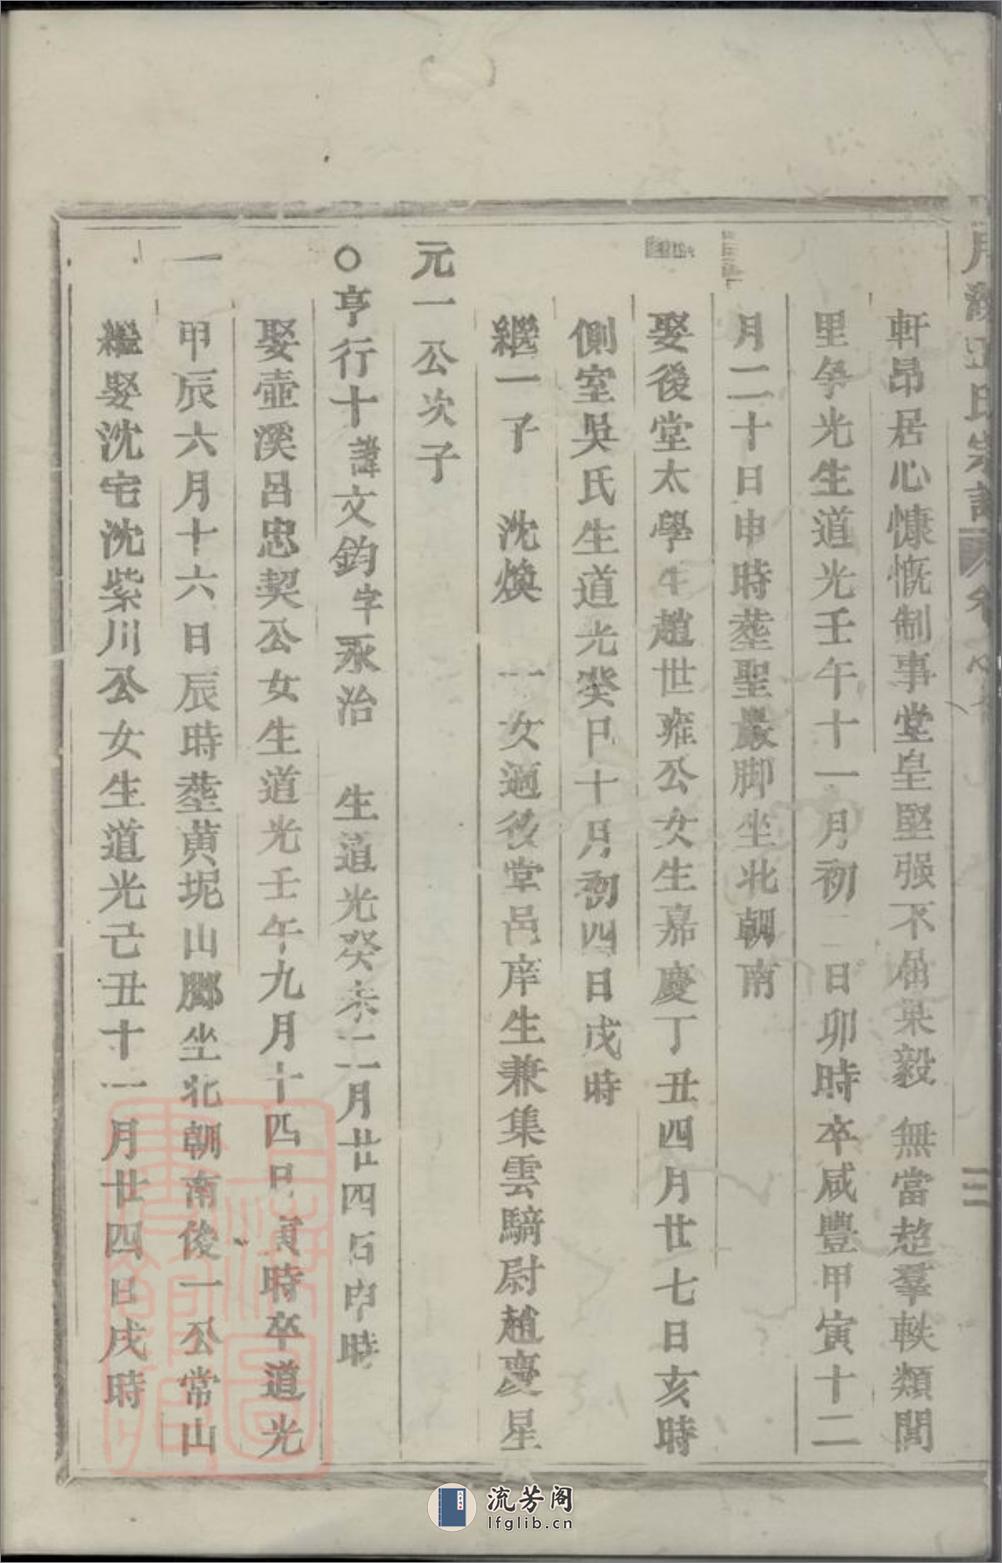 氏宗譜
三
軒昂居心慷慨制事堂皇堅强不屈果毅無當超羣軼類聞
里争光生道光壬午十一月初二日卯時卒咸豐甲寅十二
月二十日申時塟聖巖脚坐北朝南
娶後堂太學生趙世雍公女生嘉慶丁丑四月廿七日亥時
側室吳氏生道光癸巳十月初四日戌時
繼一子 沈煥 一女適後堂邑庠生兼集雲騎尉趙慶星
元一公次子
○亨行十諱文鈞字永治 生道光癸未二月廿四日申時
娶壺溪呂忠契公女生道光壬午九月十四日寅時卒道光
甲辰六月十六日辰時塟黄坭山脚坐北朝南後一公常山
繼娶沈宅沈紫川公女生道光己丑十一月廿四日戌時
流芳阁
lfglib.cn